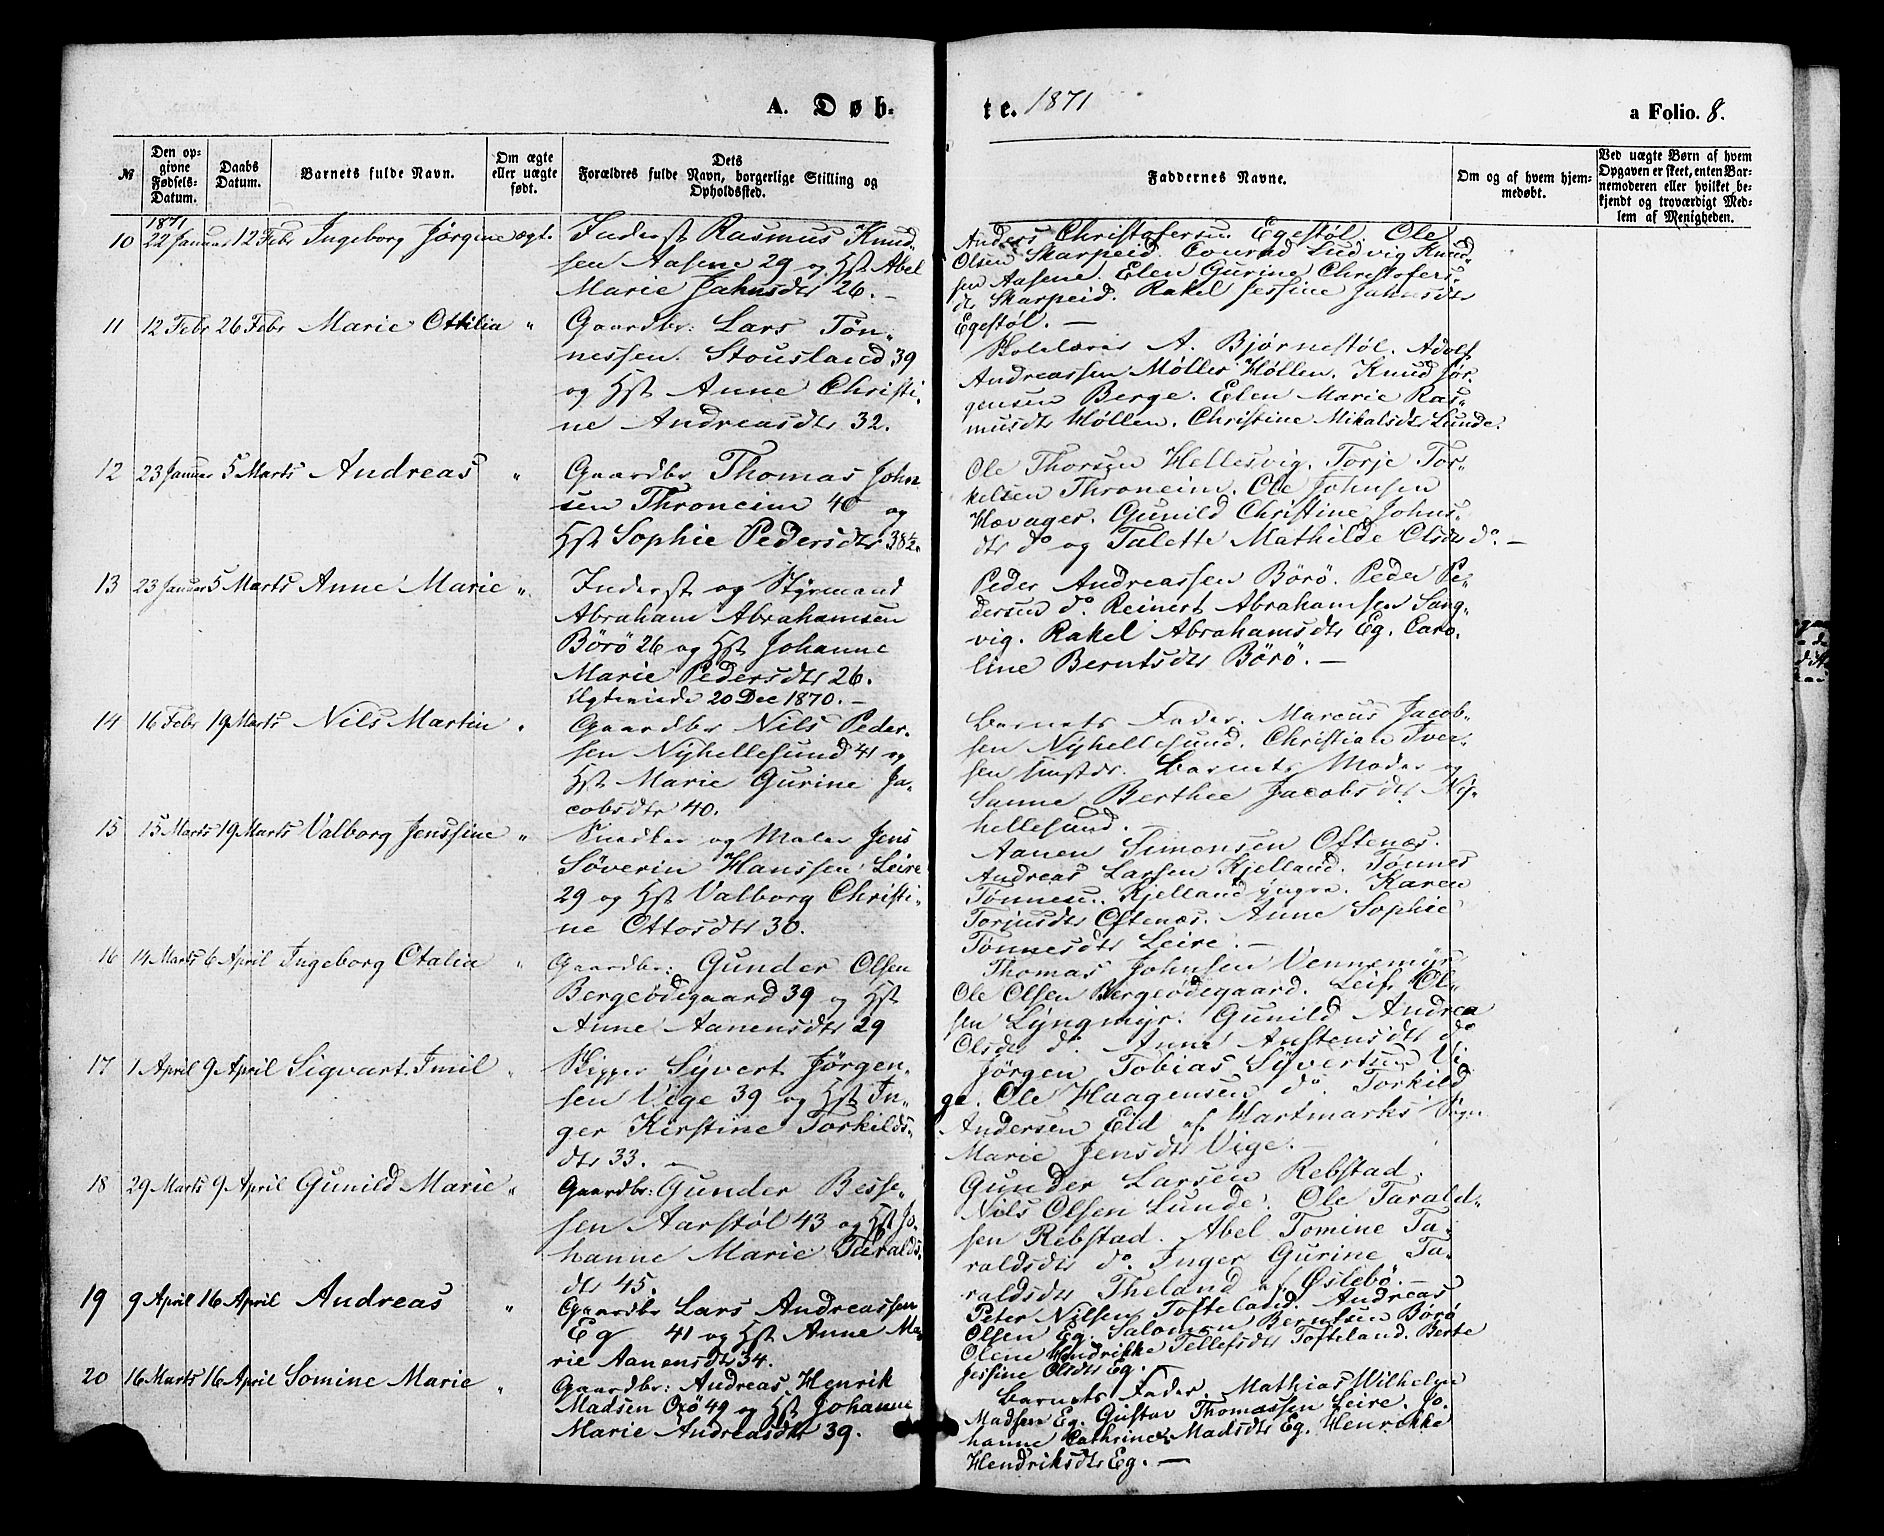 A. Døb-
te. 1871
a Folio. 8.
№
Den op-
givne
Fødsels-
Datum.
Daabs
Datum.
Barnets fulde Navn.
Om ægte
eller uægte
født.
Dets
Forældres fulde Navn, borgerlige Stilling og
Opholdssted.
Faddernes Navne.
Om og af hvem hjem-
medøbt.
Ved uægte Børn af hvem
Opgaven er skeet, enten Bar-
nemoderen eller hvilket be-
kjendt og troværdigt Med-
lem af Menigheden.
1871
10 22 Januar 12 Febr Ingeborg Jørgine ægt.
Inderst Rasmus Knud-
sen Aasene 29 og Hst Abel
Marie Jahnsdtr 26. —
Anders Christofersen Egestøl. Ole
Olsen Skarpeid. Conrad Ludvig Knud-
sen Aasene. Elen Gurine Christofers-
dtr Skarpeid. Rakel Jessine Jahnsdtr
Egestøl. —
11 12 Febr 26 Febr Marie Ottilia "
Gaardbr: Lars Tøn-
nessen Stousland 39
og Hst Anne Christi-
ne Andreasdtr 32.
Skolelærer A. Bjørnestøl. Adolf
Andreassen Møller Høllen. Knud Jør-
gensen Berge. Elen Marie Ras-
musdtr Høllen. Christine Mikalsdtr Lunde.
12 23 Januar 5 Marts Andreas "
Gaardbr Thomas John-
sen Throneim 40 og
Hst Sophie Pedersdtr 38½.
Ole Thorsen Hellesvig. Torje Tor-
kelsen Throneim. Ole Johnsen
Hævager. Gunild Christine Johns-
dtr do og Talette Mathilde Olsdtr do. —
13 23 Januar 5 Marts Anne Marie "
Inderst og Styrmand
Abraham Abrahamsen
Börö 26 og Hst Johanne
Marie Pedersdtr 26.
Ægteviede 20 Dec 1870. —
Peder Andreassen Börö. Peder Pe-
dersen do. Reinert Abrahamsen Sang-
vig. Rakel Abrahamsdtr Eg. Caro-
line Berntsdtr Börö. —
14 16 Febr 19 Marts Nils Martin "
Gaardbr Nils Peder-
sen Nyhellesund 41 og
Hst Marie Gurine Ja-
cobsdtr 40.
Barnets Fader. Marcus Jacob-
sen Nyhellesund. Christian Iver-
sen. Barnets Moder og
Sanne Berthee Jacobsdtr Ny-
hellesund.
15 15 Marts 19 Marts Valborg Jenssine "
Snedker og Maler Jens
Søverin Hanssen Leire
29 og Hst Valborg Christi-
ne Ottosdtr 30.
Aanen Simonsen Oftenæs.
Andreas Larsen Kjelland. Tønnes
Tønnesen Kjelland yngre. Karen
Torjusdtr Oftenæs. Anne Sophie
Tønnesdtr Leire. —
16 14 Marts 6 April Ingeborg Otalia "
Gaardbr: Gunder Olsen
Bergeødegaard 39 og Hst
Anne Aanensdtr 29
Thomas Johnsen Vennemyr
Ole Olsen Bergeødegaard. Leif Ol-
sen Lyngmyr. Gunild Andrea
Olsdtr do. Anne Austensdtr do
17 1 April 9 April Sigvart Imil "
Skipper Syvert Jørgen-
sen Vige 39 og Hst In-
ger Kirstine Torkilds-
dtr 33. —
Jørgen Tobias Syvertsen Vi-
ge. Ole Haagensen do. Torkild
Andersen Eid af Hartmarks Sogn
Marie Jensdtr Vige. —
18 29 Marts 9 April Gunild Marie "
Gaardbr: Gunder Besse-
sen Aarstøl 43 og Hst Jo-
hanne Marie Taralds-
dtr 45.
Gunder Larsen Rebstad.
Nils Olsen Lunde. Ole Tarald-
sen Rebstad. Abel Tomine Ta-
raldsdtr do. Inger Gurine Ta-
raldsdtr Theland af Øslebö. —
19 9 April 16 April Andreas "
Gaardbr Lars Andreassen
Eg 41 og Hst Anne Ma-
rie Aanensdtr 34.
Peter Nilsen Tofteland. Andreas
Olsen Eg. Salomon Berntsen Börö
Olene Hendrikke Tellefsdtr Tofteland. Berte
Jessine Olsdtr Eg. —
20 16 Marts 16 April Somine Marie "
Gaardbr: Andreas Henrik
Madsen Oxö 49 og Hst Johanne
Marie Andreasdtr 39.
Barnets Fader. Mathias Wilhelm
Madsen Eg. Gustav Thomassen Leire. Jo-
hanne Cathrine Madsdtr Eg. Henrikke
Hendriksdtr Eg. —